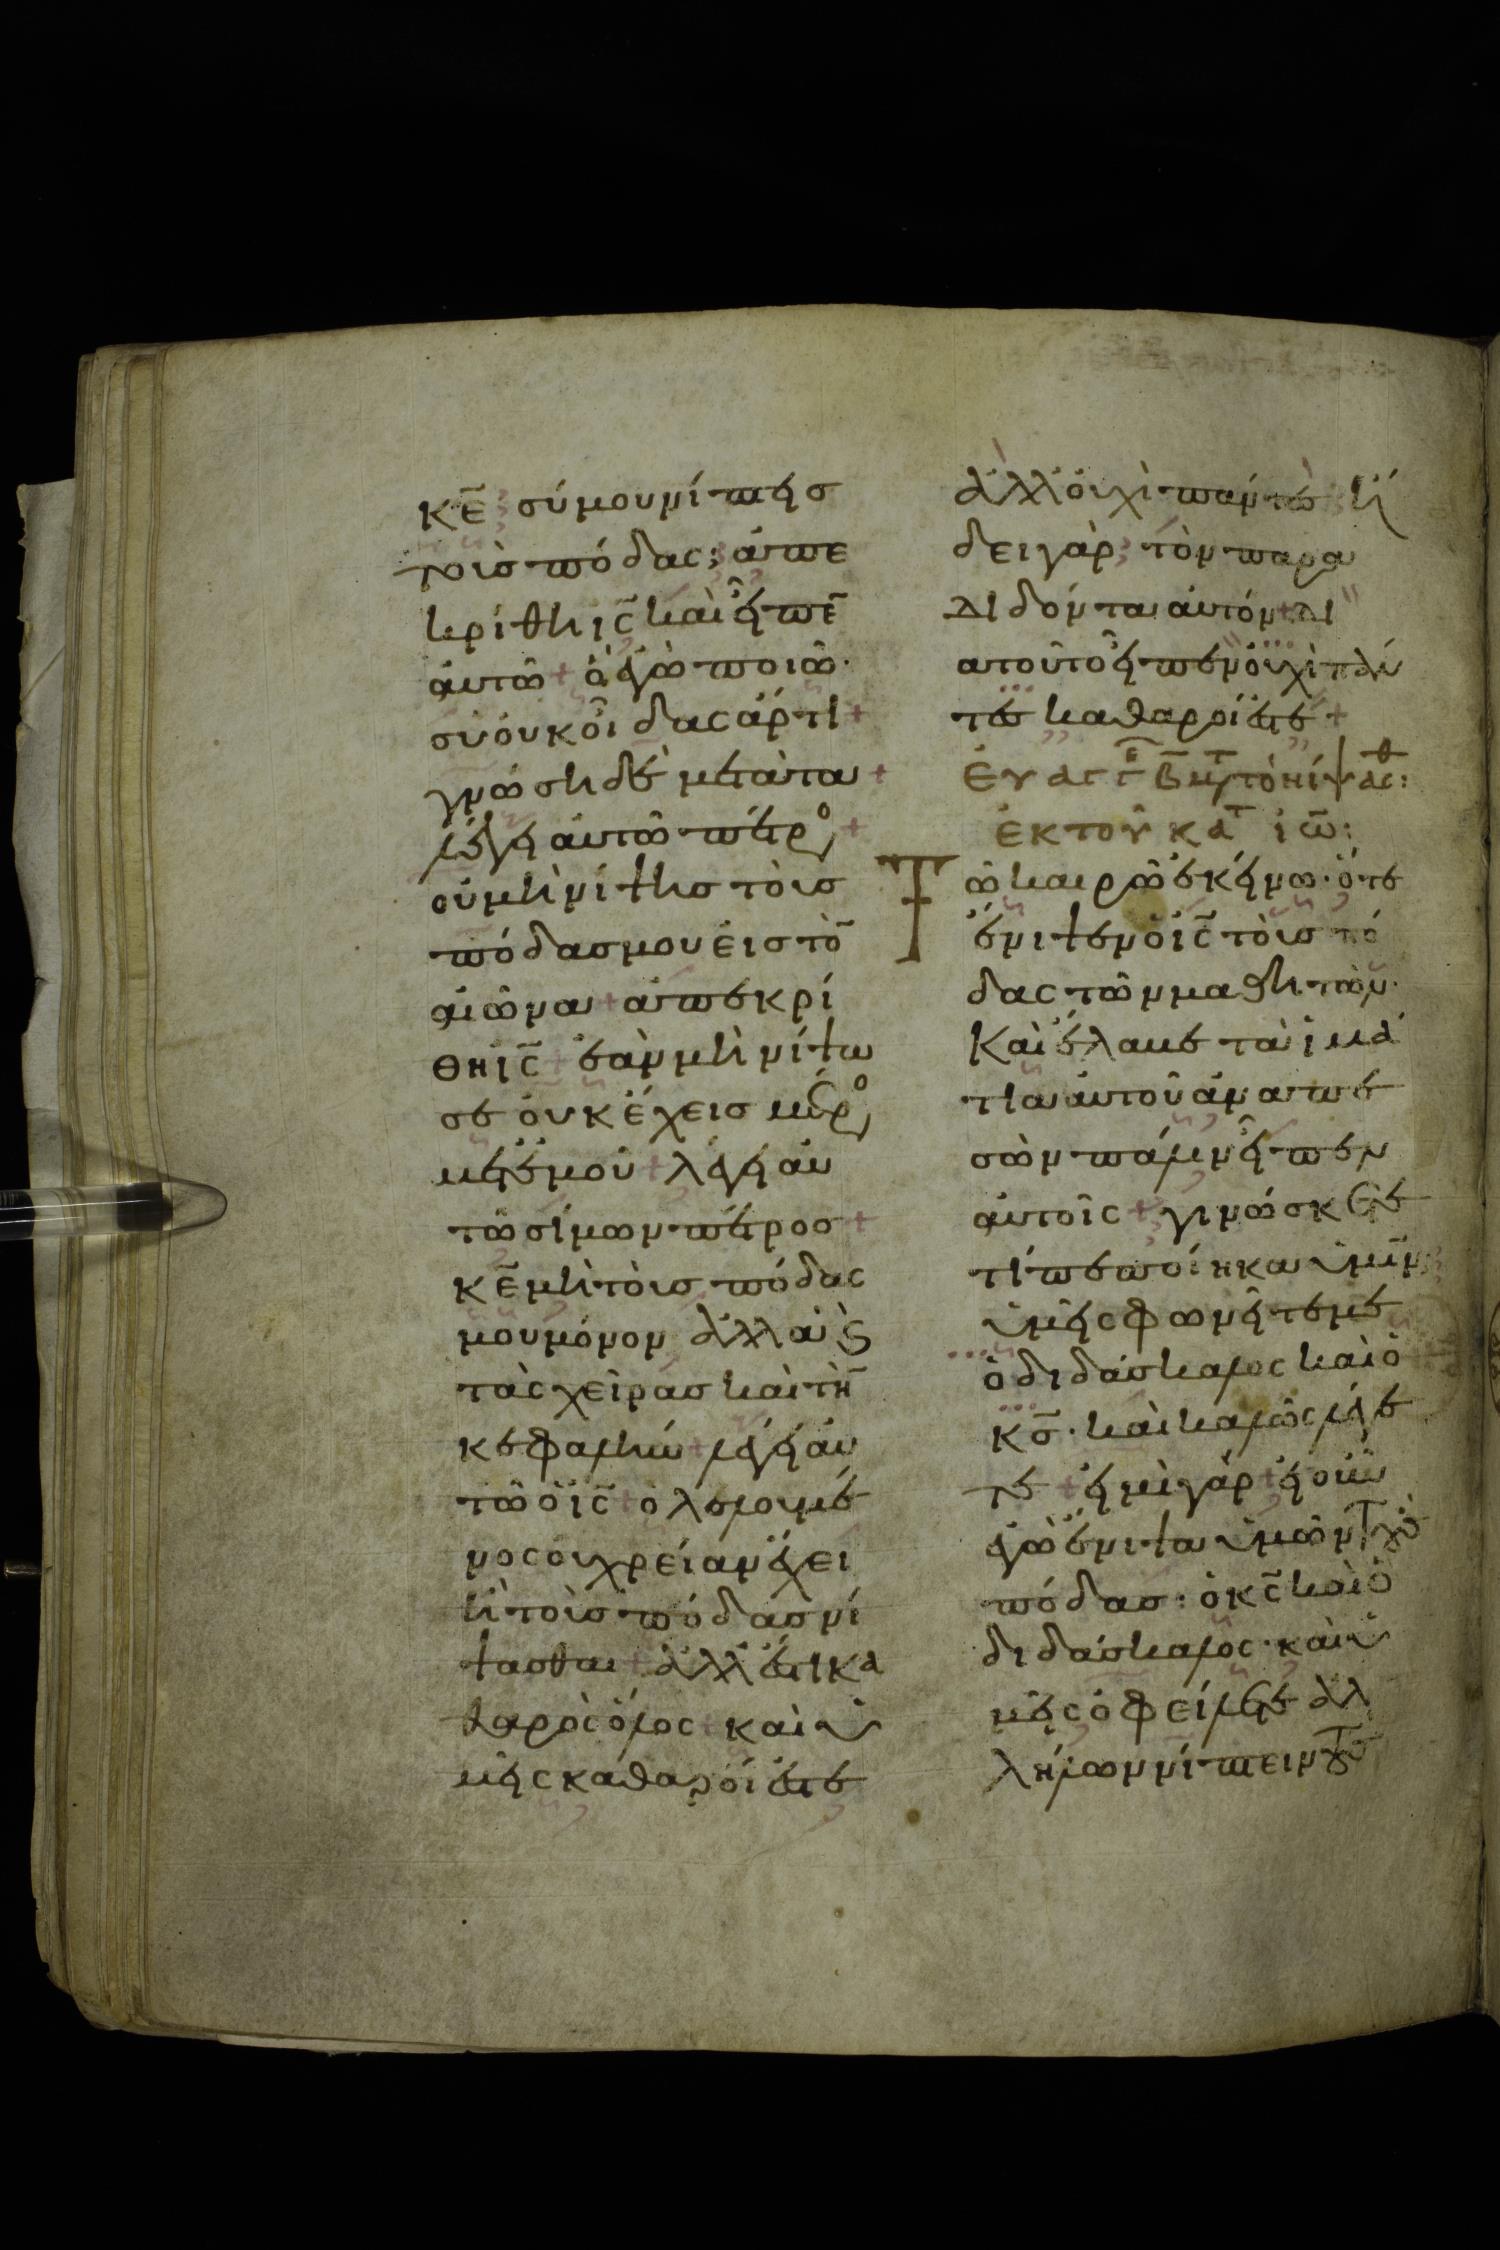 κ̅ε̅ σύ μου νίπτεισ
τοὺσ πόδας; ἀπε
κρίθη ι̅ς̅ καὶ εἶπε̅
αὐτῶ + ὃ ἐγὼ ποιῶ·
σὺ οὐκ οἶδας ἄρτι +
γνώση δὲ μετὰ ταῦτα +
λέγει αὐτῶ πέτρο +
οὐ μὴ νίψησ τοὺσ
πόδασ μου εἰσ τὸ̅
αἰῶνα + ἀπεκρί
θη ι̅ς̅ + ἐὰν μὴ νίψω
σε οὐκ ἔχεισ μέρο
μετ ἐμοῦ + λέγει αὐ
τῶ σίμων πέτροσ +
κ̅ε̅ μὴ τοὺσ πόδας
μου μόνον ἀλλὰ ϗ
τὰς χεῖρασ καὶ τὴ̅
κεφαλήν + λέγει αὐ
τῶ ὁ ι̅ς̅ + ὁ λελουμέ
νος οὐ χρείαν ἔχει
ἢ τοὺσ πόδασ νί
ψασθαι + ἀλλ ἔστι κα
θαρὸς ὅλος + καὶ ὑ
μεῖς καθαροί ἐστε
ἀλλ οὐχὶ πάντες ᾔ
δει γὰρ τὸν παρα
διδόντα αὐτόν + δι
α τοῦτο εἶπεν οὐχὶ πάν
τες καθαροί ἐστε +
ἐκ τοῦ κατ ἰω̅:
Τῶ καιρῶ ἐκείνω· ὅτε
ἔνιψεν ὁ ι̅ς̅ τοὺσ πό
δας τῶν μαθητῶν·
Καὶ ἔλαβε τὰ ἱμά
τια αὐτοῦ ἀναπε
σὼν πάλιν εἶπεν
αὐτοῖς + γινώσκετε
τί πεποίηκα ὑμῖν;
ὑμεῖς φωνεῖτε με
ὁ διδάσκαλος καὶ ὁ
κ̅σ̅· καὶ καλῶς λέγε
τε + εἰμὶ γάρ + εἰ οὖν
ἐγὼ ἔνιψα ὑμῶν τοὺς
πόδασ: ὁ κ̅ς̅ καὶ ὁ
διδάσκαλος· καὶ ὑ
μεῖς ὀφείλετε ἀλ
λήλων νίπτειν τοὺς